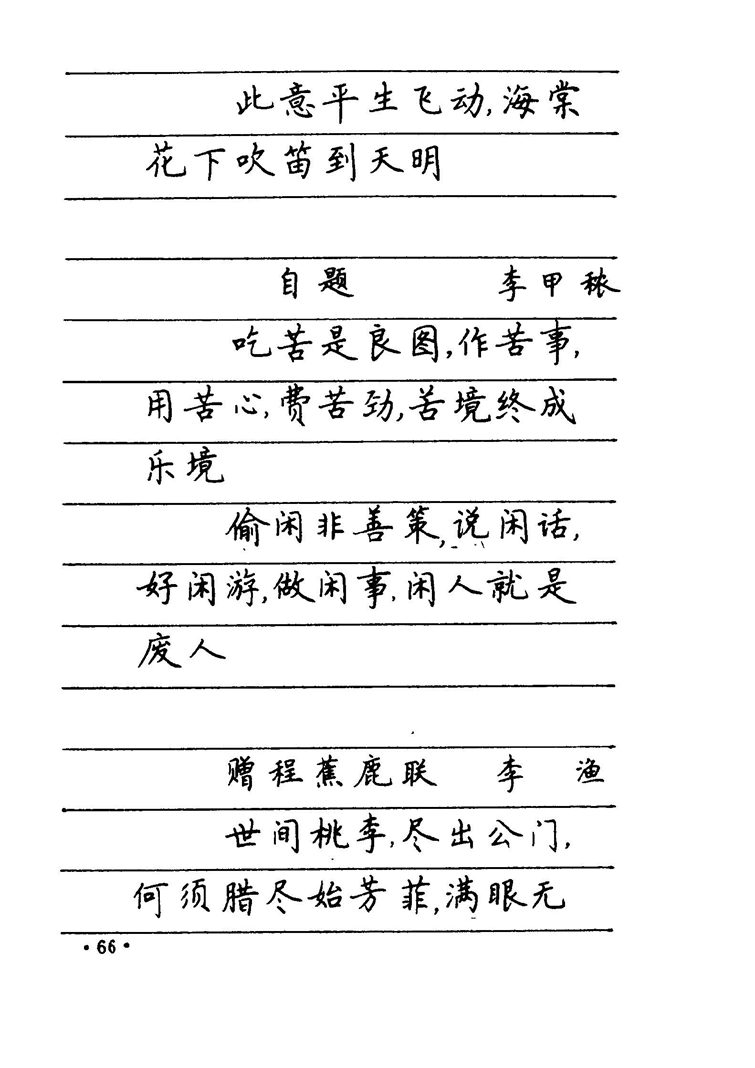 此意平生飞动,海棠
花下吹笛到天明
自题 李甲秾
吃苦是良图,作苦事,
用苦心,费苦劲,苦境终成
乐境
偷闲非善策,说闲话,
好闲游,做闲事,闲人就是
废人
赠程蕉鹿联 李渔
世间桃李,尽出公门,
何须腊尽始芳菲,满眼无
·66·